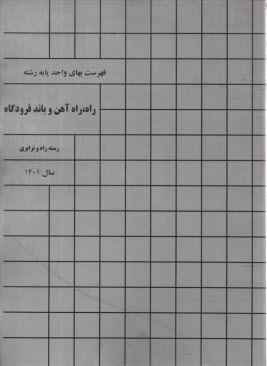 فهرست بهای واحد پایه رشته
راه،راه آهن و باند فرودگاه
رسته راه و ترابری
سال ۱۴۰۱